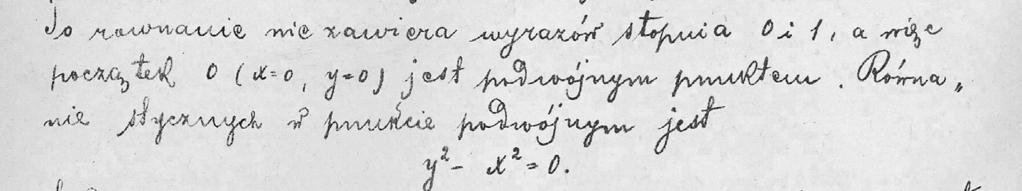 To rownanie nie zawiera wyrazów stopnia 0 i 1, a więc
początek 0 (x=0, y=0) jest podwójnym punktem. Równa„
nie stycznych w punkcie podwójnym jest
y² - x² = 0.